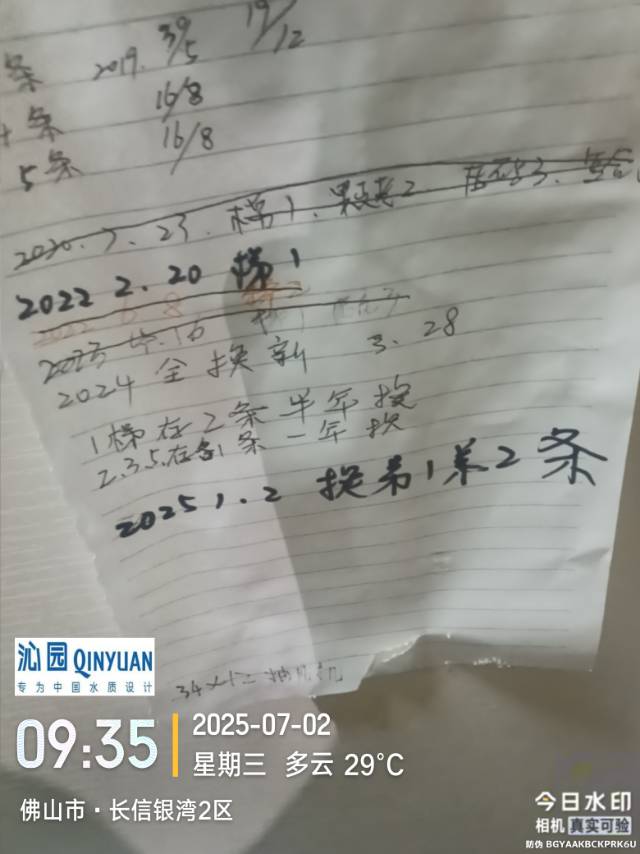 条 2019. 39/5 19/12
4条 16/8
5条 16/8
2020.7.23. 梯1.
2022 2.20 梯1
2022 6 8
2023
2024 全换新 3.28
1梯在2条半年换
2.3.5.在各1条一年换
2025 1.2 换第1第2条
沁园QINYUAN
专为中国水质设计
09:35
2025-07-02
星期三 多云 29°C
佛山市·长信银湾2区
今日水印
相机 真实可验
防伪 BGYAAKBCKPRK6U